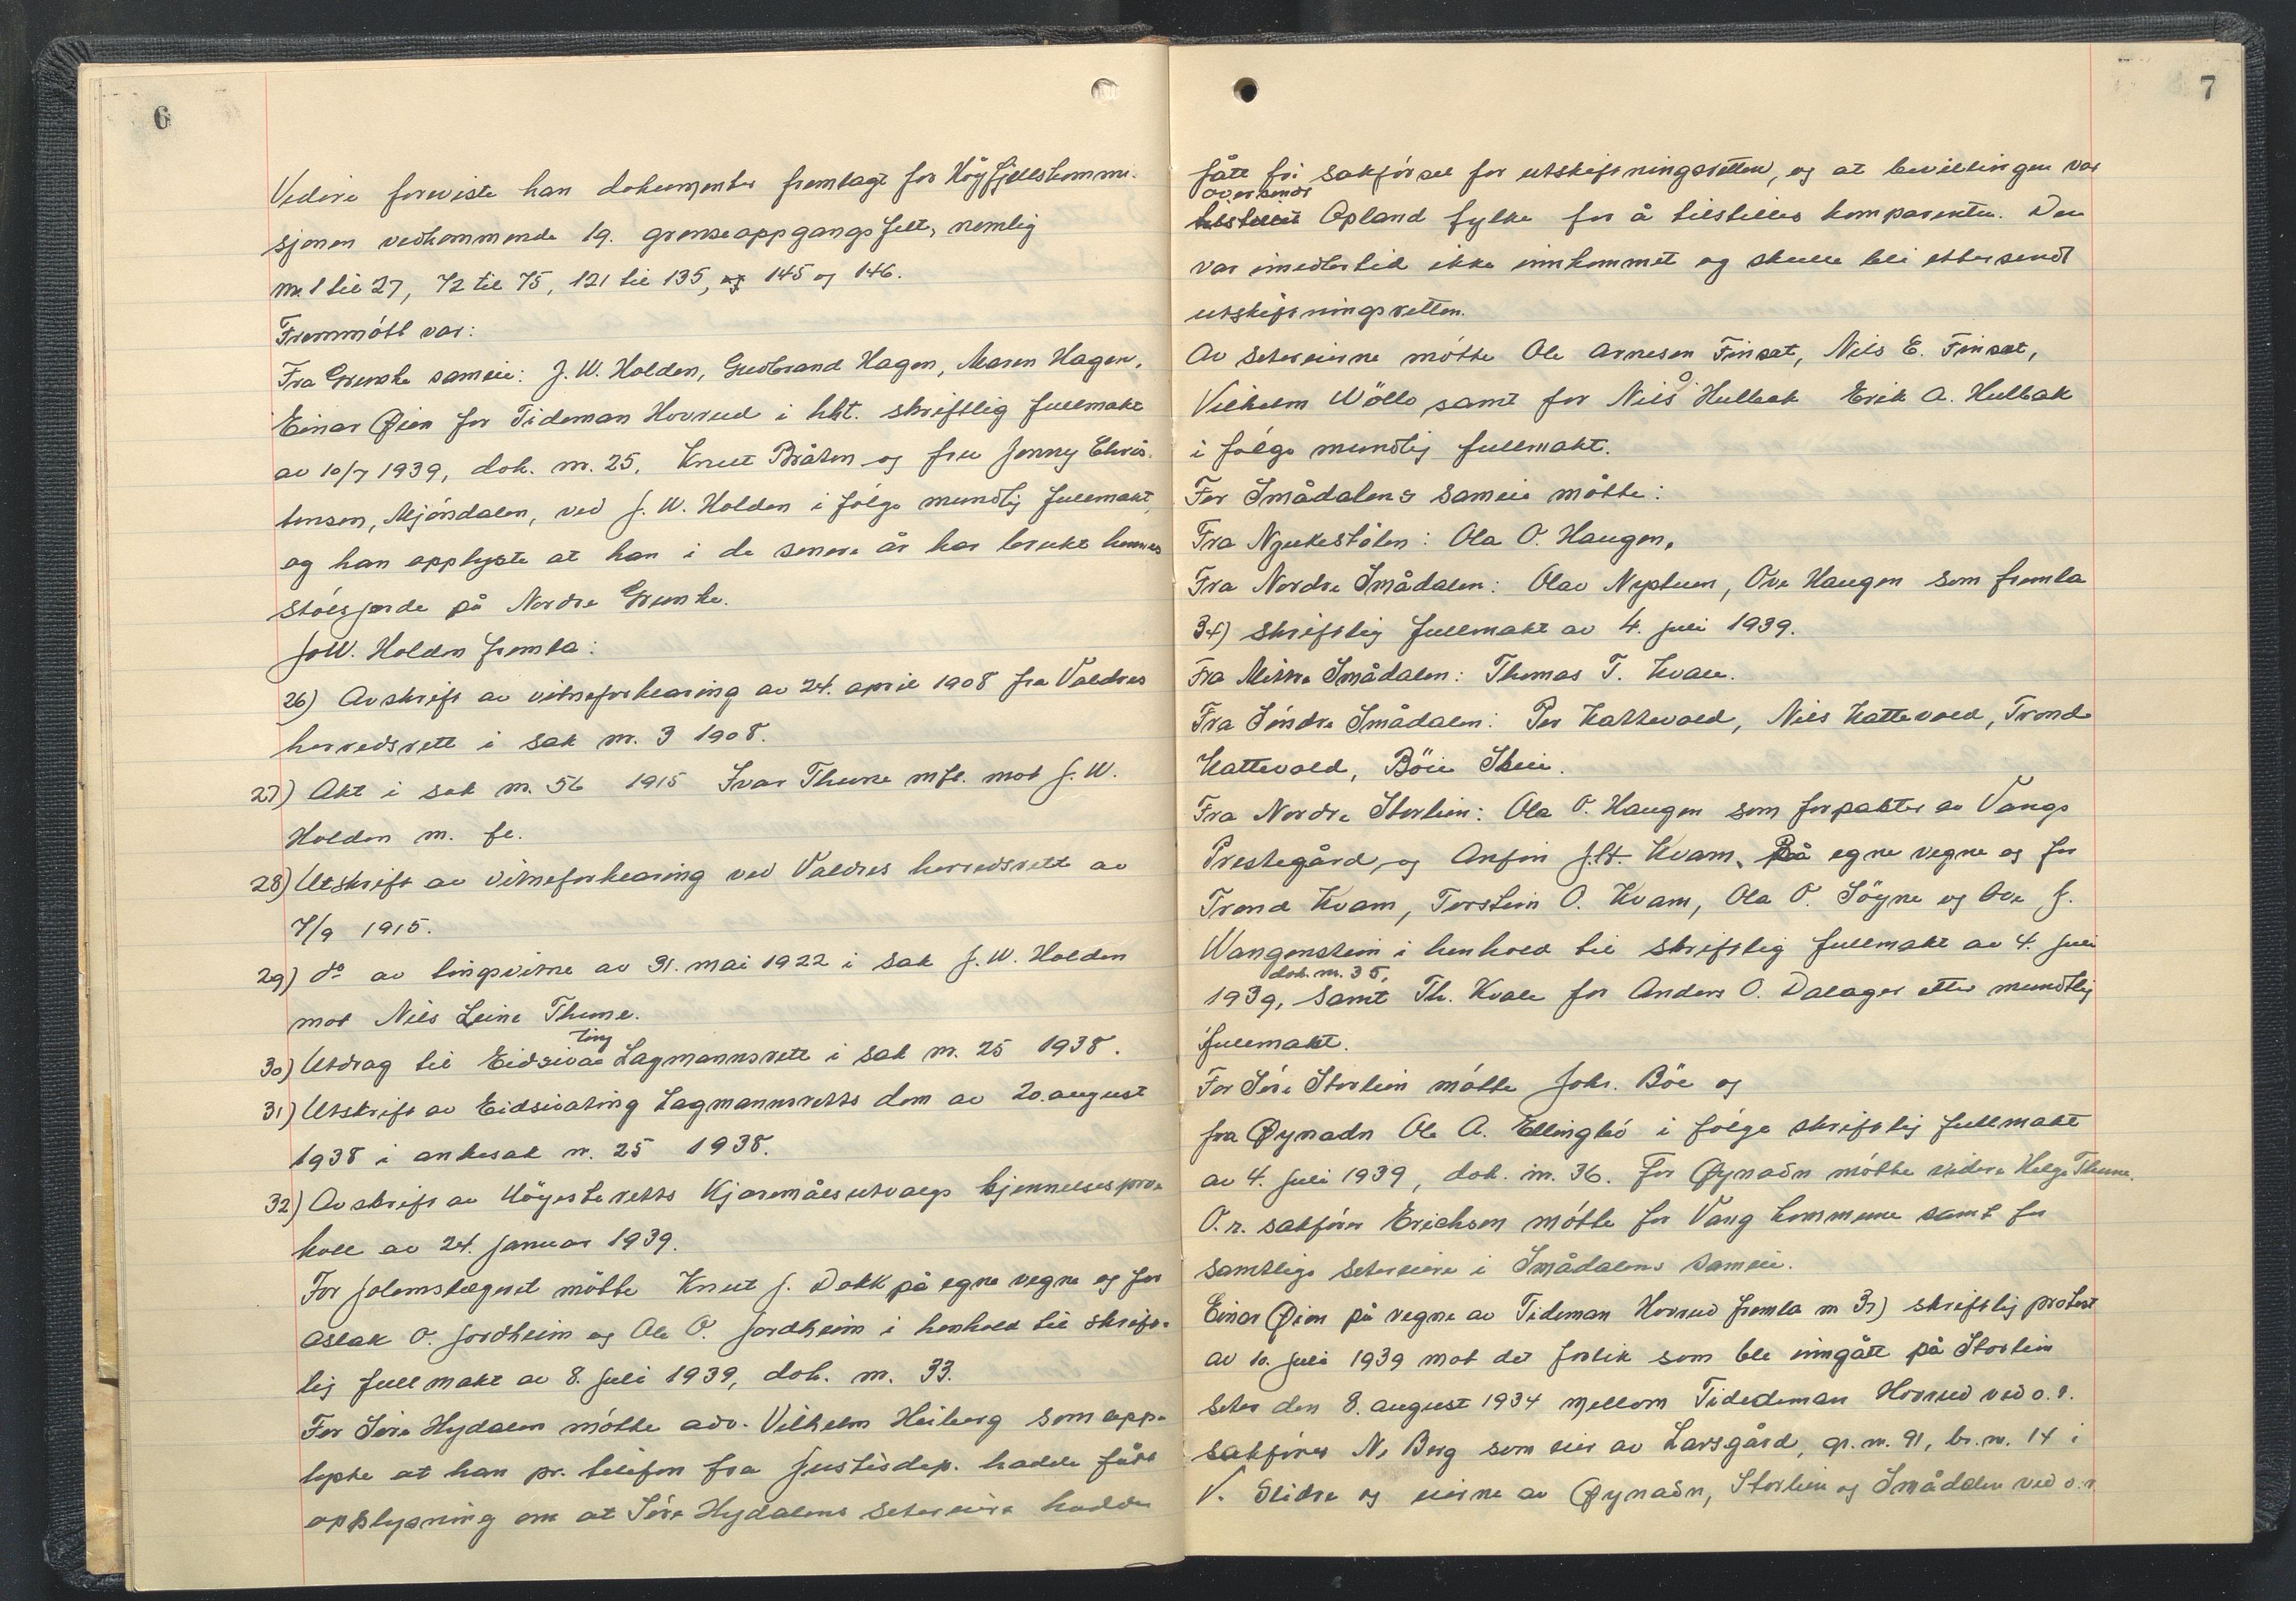 6
Videre foreviste han dokumenter fremlagt for Høgfjellskommi-
sjonen vedkommende 19. grenseoppgangsfelt, nemlig
nr. 1 til 27, 72 til 75, 121 til 135, og 145 og 146.
Fremmøtt var:
Fra Grunke sameie: J. W. Holden, Gudbrand Hagen, Maren Hagen,
Einar Øien for Tideman Hovrud i hht. skriftlig fullmakt
av 10/7 1939, dok. nr. 25, Knut Bråten og fru Jenny Chris-
tensen, Mjøndalen, ved J. W. Holden i følge muntlig fullmakt,
og han opplyste at han i de senere år har brukt hennes
stølsgjerde på Nordre Grunke.
J. W. Holden fremla:
26) Avskrift av vitneforklaring av 24. april 1908 fra Valdres
herredsrett i sak nr. 3 1908.
27) Akt i sak nr. 56 1915 Ivar Thune mfl. mot J. W.
Holden m. fl.
28) Utskrift av vitneforklaring ved Valdres herredsrett av
7/9 1915.
29) do av tingsvitne av 31. mai 1922 i sak J. W. Holden
mot Nils Leine Thune.
30) Utdrag til Eidsivating Lagmannsrett i sak nr. 25 1938.
31) Utskrift av Eidsivating Lagmannsretts dom av 20. august
1938 i ankesak nr. 25 1938.
32) Avskrift av Høyesteretts Kjæremålsutvalgs kjennelsesproto-
koll av 24. januar 1939.
For Jolemshøgset møtte Knut J. Dokk på egne vegne og for
Aslak O. Jordheim og Ole O. Jordheim i henhold til skrift-
lig fullmakt av 8. juli 1939, dok. nr. 33.
For Søre Hydalen møtte adv. Vilhelm Heiberg som opp-
lyste at han pr. telefon fra Justisdep. hadde fått
opplysning om at Søre Hydalens setereiere hadde
7
fått fri sakførsel for utskiftningsretten, og at bevillingen var
oversendt
tilstillet Opland fylke for å tilstilles komparenten. Den
var imidlertid ikke innkommet og skulle bli ettersendt
utskiftningsretten.
Av setereierne møtte Ole Arnesen Finset, Nils E. Finset,
Vilhelm Wøllo samt for Nils Hulbak Erik A. Hulbak
i følge muntlig fullmakt.
For Smådalens sameie møtte:
Fra Nykestølen: Ola O. Haugen,
Fra Nordre Smådalen: Olav Nystuen, Ove Haugen som fremla
34) skriftlig fullmakt av 4. juli 1939.
Fra Mitre Smådalen: Thomas T. Kvale.
Fra Søndre Smådalen: Per Kattevold, Nils Kattevold, Trond
Kattevold, Böie Skeie.
Fra Nordre Storlien: Ola O. Haugen som forpakter av Vangs
Prestegård, og Anfin J. H. Kvam, På egne vegne og for
Trond Kvam, Torstein O. Kvam, Ola O. Søyne og Ove J.
Wangensteen i henhold til skriftlig fullmakt av 4. juli
dok. nr. 35,
1939, samt Th. Kvale for Anders O. Dalager etter muntlig
fullmakt.
For Søre Storlien møtte Johs. Böe og
fra Øynadn Ole A. Ellingbø i følge skriftlig fullmakt
av 4. juli 1939, dok. nr. 36. For Øynadn møtte videre Helge Thune.
O.r. sakfører Erichsen møtte for Vang kommune samt for
samtlige setereiere i Smådalens sameie.
Einar Øien på vegne av Tideman Hovrud fremla nr 37) skriftlig protest
av 10. juli 1939 mot det forlik som ble inngått på Storlien
seter den 8. august 1934 mellom Tidedeman Hovrud ved o.r.
sakfører N. Berg som eier av Larsgård, gr. nr. 91, br. nr. 14 i
V. Slidre og eierne av Øynadn, Storlien og Smådalen ved o.r.